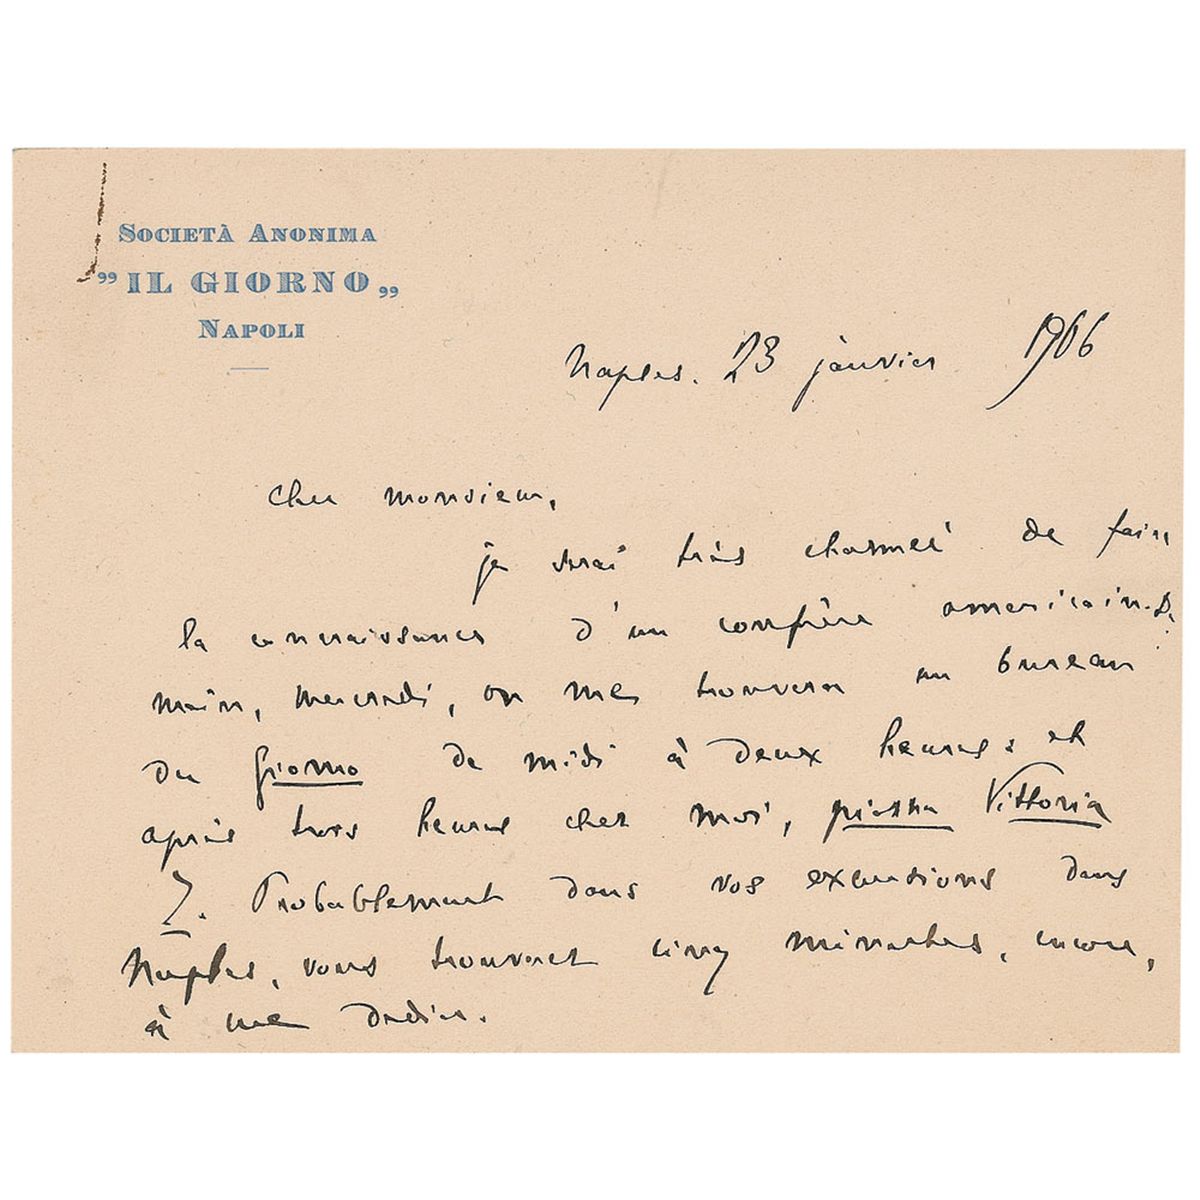 SOCIETÀ ANONIMA
„ IL GIORNO „
NAPOLI
Naples. 23 janvier 1906
Cher monsieur,
je serai très charmée de faire
la connaissance d'un confrère americain. De
main, mercredi, on me trouvera au bureau
du Giorno de midi à deux heures: et
après trois heures chez moi, piazza Vittoria
7. Probablement dans vos excursions dans
Naples, vous trouverez cinq minutes, encore,
à me dedier.